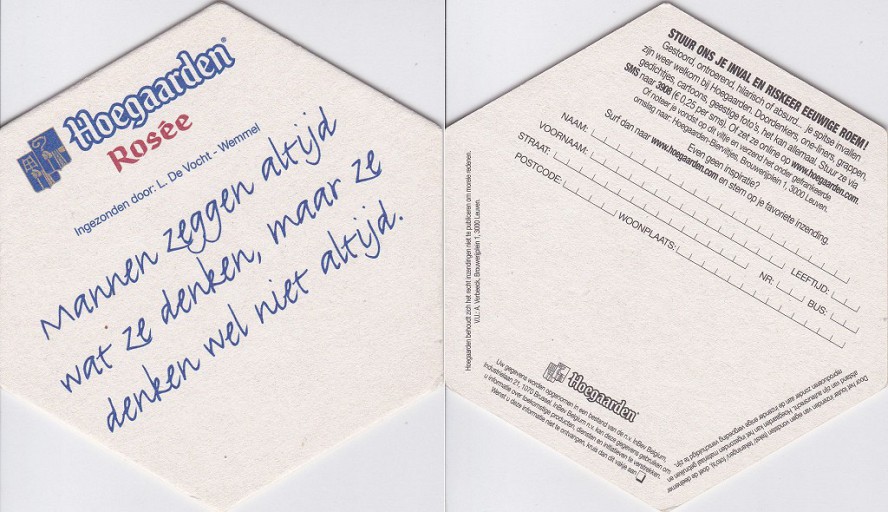 Hoegaarden®
Rosée
Ingezonden door: L. De Vocht - Wemmel
Mannen zeggen altijd
wat ze denken, maar ze
denken wel niet altijd.
STUUR ONS JE INVAL EN RISKEER EEUWIGE ROEM!
Gestoord, ontroerend, hilarisch of absurd... je spitse invallen
zijn weer welkom bij Hoegaarden. Doordenkers, one-liners, grappen,
gedichtjes, cartoons, geestige foto's, het kan allemaal. Stuur ze via
SMS naar 3908 (€ 0,25 per sms). Of zet ze online op www.hoegaarden.com.
Of noteer je vondst op dit viltje en verzend het onder gefrankeerde
omslag naar: Hoegaarden-Bierviltjes, Brouwerijplein 1, 3000 Leuven.
Even geen inspiratie?
Surf dan naar www.hoegaarden.com en stem op je favoriete inzending.
NAAM:
VOORNAAM: LEEFTIJD:
STRAAT: NR: BUS:
POSTCODE: WOONPLAATS:
Hoegaarden behoudt zich het recht inzendingen niet te publiceren om morele redenen.
V.U.: A. Verbeeck, Brouwerijplein 1, 3000 Leuven.
Hoegaarden®
Uw gegevens worden opgenomen in een bestand van de n.v. InBev Belgium,
Industrielaan 21, 1070 Brussel. InBev Belgium n.v. kan deze gegevens gebruiken om
u informatie over toekomstige producten, diensten en initiatieven te verstrekken.
Wenst u deze informatie niet te ontvangen, kruis dan dit vakje aan
Door het louter inzenden van eigen vondsten (tekst, tekeningen, foto's), doet de deelnemer
afstand van zijn auteursrecht. Hoegaarden kan het ingezonden materiaal gebruiken en
reproduceren zonder aan de inzender enige vergoeding verschuldigd te zijn.